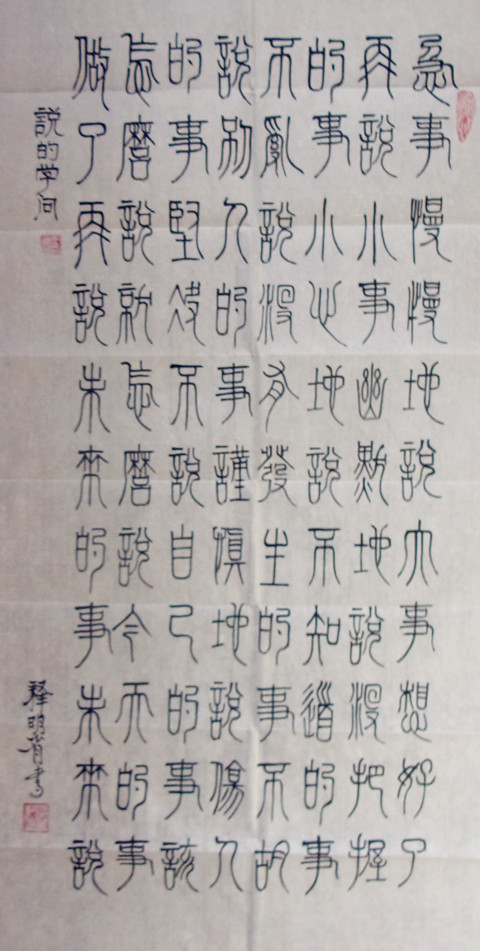 急事慢慢地說大事想好了
再說小事幽默地說沒把握
的事小心地說不知道的事
不亂說沒有發生的事不胡
說別人的事謹慎地說傷人
的事堅決不說自己的事該
怎麼說就怎麼說今天的事
做了再說未來的事未來說
說的学问
釋明書